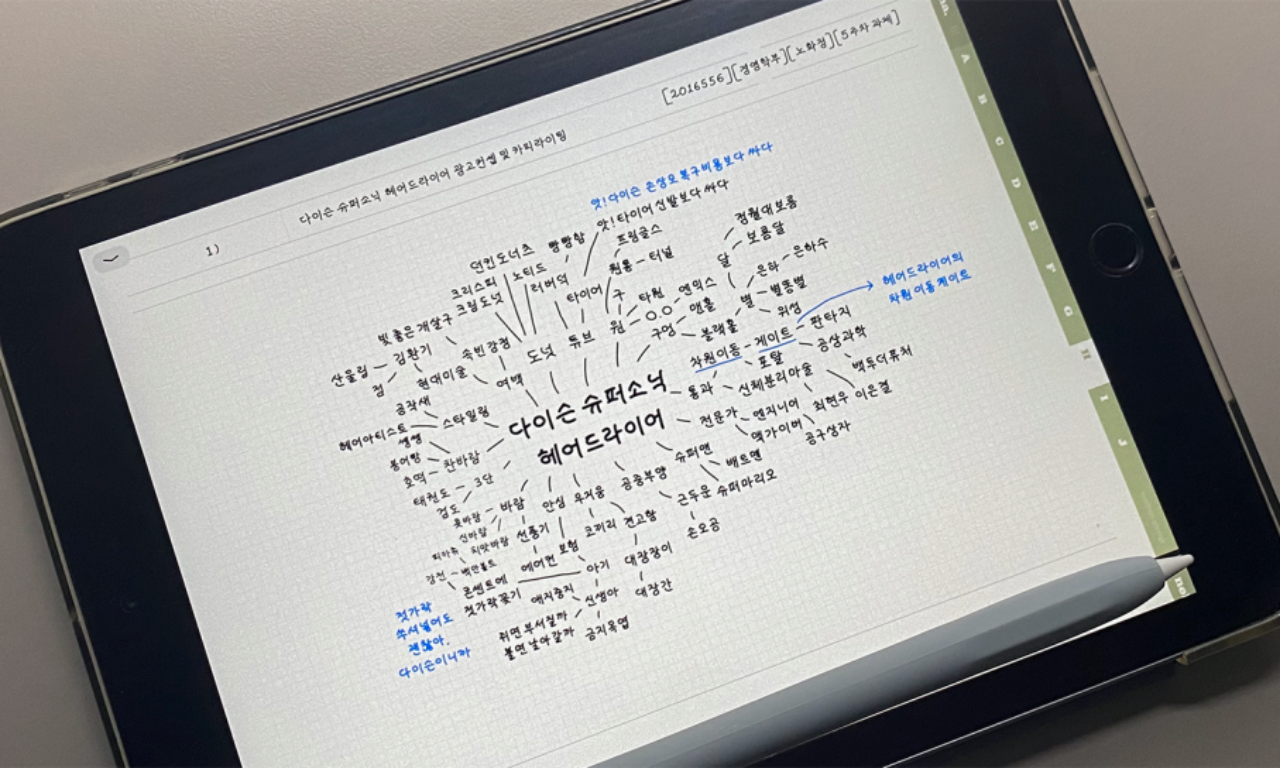 [2016556][경영학부][노화정][5주차 과제]
다이슨 슈퍼소닉 헤어드라이어 광고컨셉 및 카피라이팅
1)
앗! 다이슨 손상모 복구비용보다 싸다
앗! 타이어 신발보다 싸다
던킨도너츠 빵빵함 프링글스 정월대보름
크리스피 노티드 러버덕 원통 - 터널 달 보름달
크림도넛 타이어 구 타원 엔믹스 은하 은하수
빛 좋은 개살구 속빈강정 도넛 튜브 원 ㅇ.ㅇ 구멍 맨홀 별 별똥별
산울림 김환기 블랙홀 위성
점 현대미술 여백 차원이동 - 게이트 - 판타지
헤어드라이어의
차원이동게이트
공작새 스타일링 포탈 공상과학
헤어아티스트 다이슨 슈퍼소닉 통과 신체분리마술 백투더퓨처
쌩쌩 헤어드라이어 전문가 엔지니어 최현우 이은결
붕어빵 찬바람 맥가이버 공구상자
호떡 슈퍼맨 배트맨
태권도 3단 공중부양 근두운 슈퍼마리오
검도 바람 안심 무거움 손오공
꽃바람 선풍기 코끼리 견고함
신바람 치맛바람 에어컨 보험 대장장이
피카츄 백만볼트 아기 대장간
감전 콘센트에 애지중지 신생아
젓가락꽂기 쥐면 부서질까 금지옥엽
불면 날아갈까
젓가락
쑤셔넣어도
괜찮아.
다이슨이니까
A
B
C
D
E
F
G
H
I
J